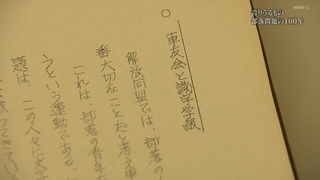 誇りうるもの
部落問題の100年
○
車友会と識字学級
解放同盟では、部落の
番大切なことだと考え車
これは、部落の青年
うという運動である。
題は、この人々に文